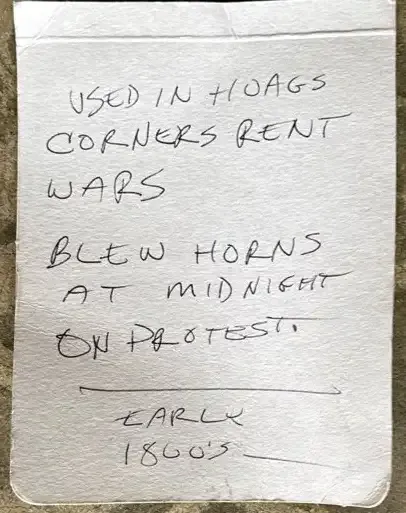 USED IN HOAGS
CORNERS RENT
WARS
BLEW HORNS
AT MIDNIGHT
ON PROTEST.
EARLY
1800'S